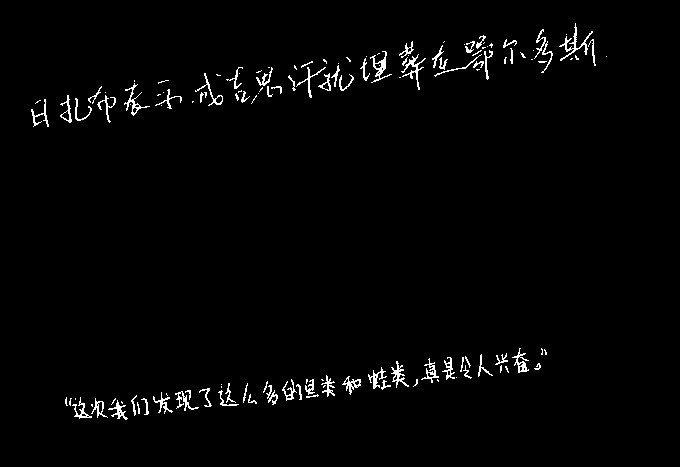 日扎布表示,成吉思汗就埋葬在鄂尔多斯.
“这次我们发现了这么多的鱼类和蛙类,真是令人兴奋。”